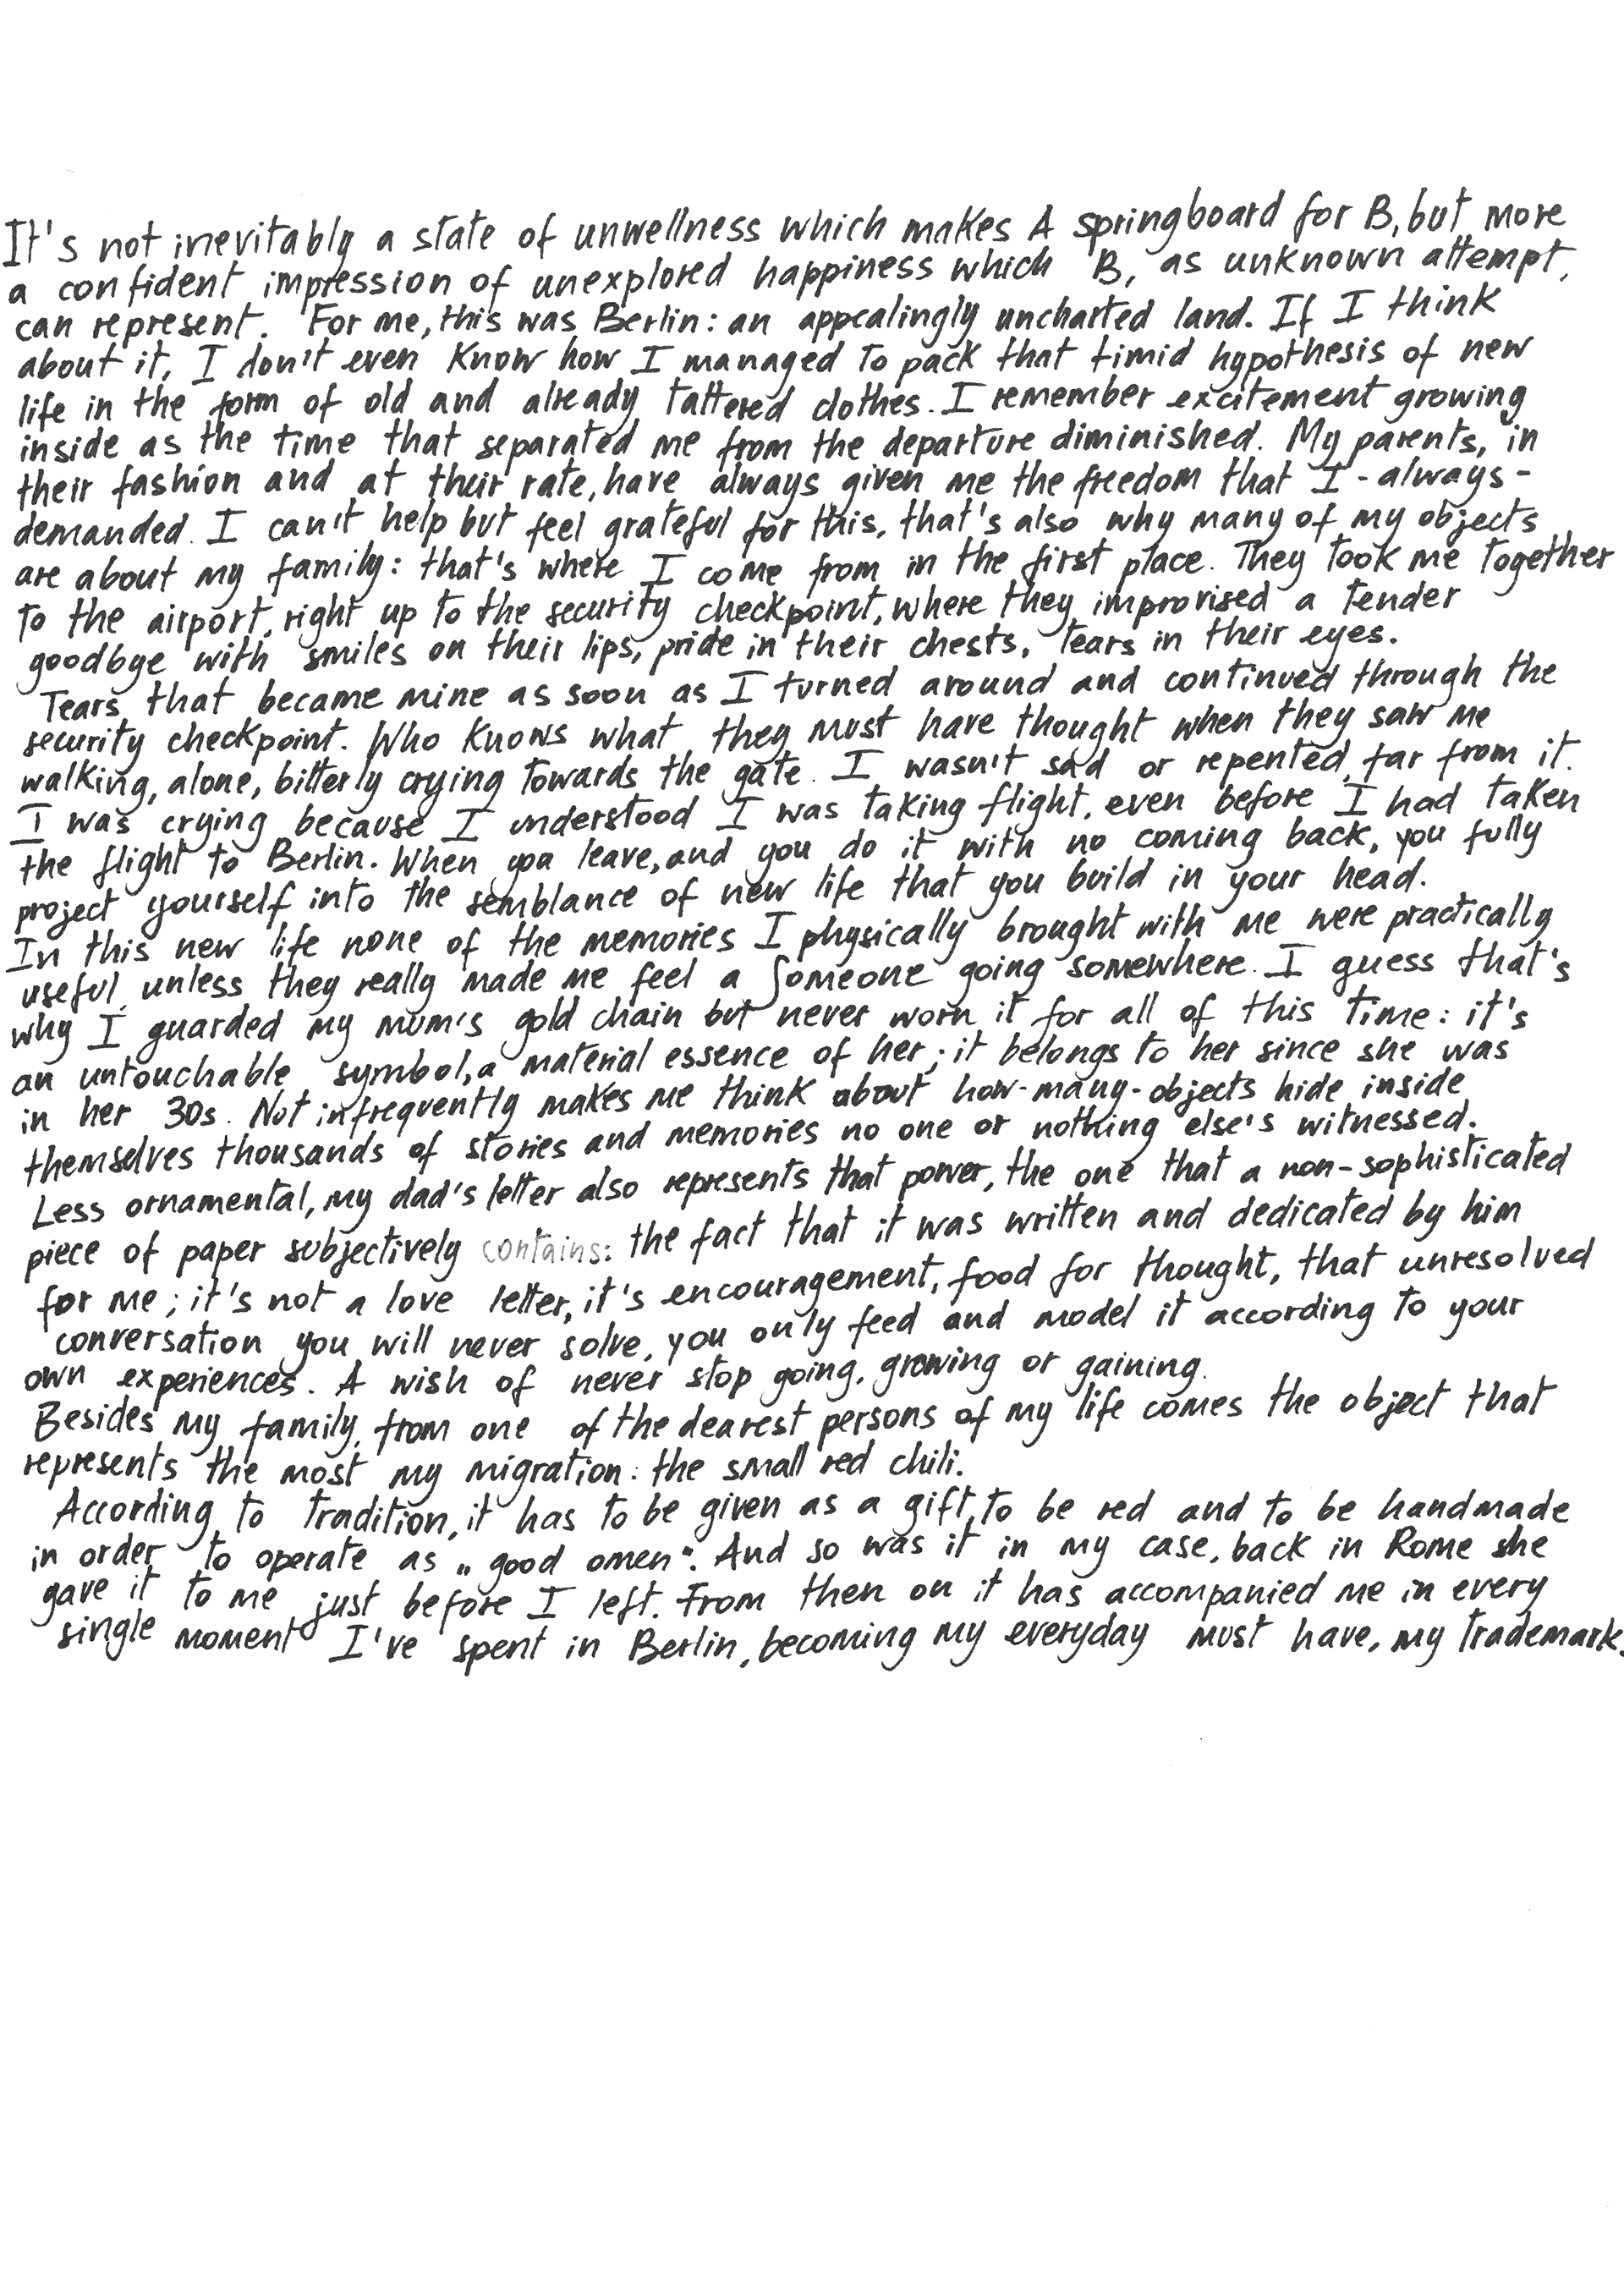 It's not inevitably a state of unwellness which makes A springboard for B, but more
a confident impression of unexplored happiness which B, as unknown attempt,
can represent. For me, this was Berlin: an appealingly uncharted land. If I think
about it, I don't even know how I managed to pack that timid hypothesis of new
life in the form of old and already tattered clothes. I remember excitement growing
inside as the time that separated me from the departure diminished. My parents, in
their fashion and at their rate, have always given me the freedom that I - always -
demanded. I can't help but feel grateful for this, that's also why many of my objects
are about my family: that's where I come from in the first place. They took me together
to the airport, right up to the security checkpoint, where they improvised a tender
goodbye with smiles on their lips, pride in their chests, tears in their eyes.
Tears that became mine as soon as I turned around and continued through the
security checkpoint. Who knows what they must have thought when they saw me
walking, alone, bitterly crying towards the gate. I wasn't sad or repented, far from it.
I was crying because I understood I was taking flight, even before I had taken
the flight to Berlin. When you leave, and you do it with no coming back, you fully
project yourself into the semblance of new life that you build in your head.
In this new life none of the memories I physically brought with me were practically
useful, unless they really made me feel a Someone going somewhere. I guess that's
why I guarded my mum's gold chain but never worn it for all of this time: it's
an untouchable symbol, a material essence of her; it belongs to her since she was
in her 30s. Not infrequently makes me think about how-many-objects hide inside
themselves thousands of stories and memories no one or nothing else's witnessed.
Less ornamental, my dad's letter also represents that power, the one that a non-sophisticated
piece of paper subjectively contains: the fact that it was written and dedicated by him
for me; it's not a love letter, it's encouragement, food for thought, that unresolved
conversation you will never solve, you only feed and model it according to your
own experiences. A wish of never stop going, growing or gaining.
Besides my family, from one of the dearest persons of my life comes the object that
represents the most my migration: the small red chili.
According to tradition, it has to be given as a gift, to be red and to be handmade
in order to operate as „good omen". And so was it in my case, back in Rome she
gave it to me just before I left. From then on it has accompanied me in every
single moment I've spent in Berlin, becoming my everyday must have, my trademark.